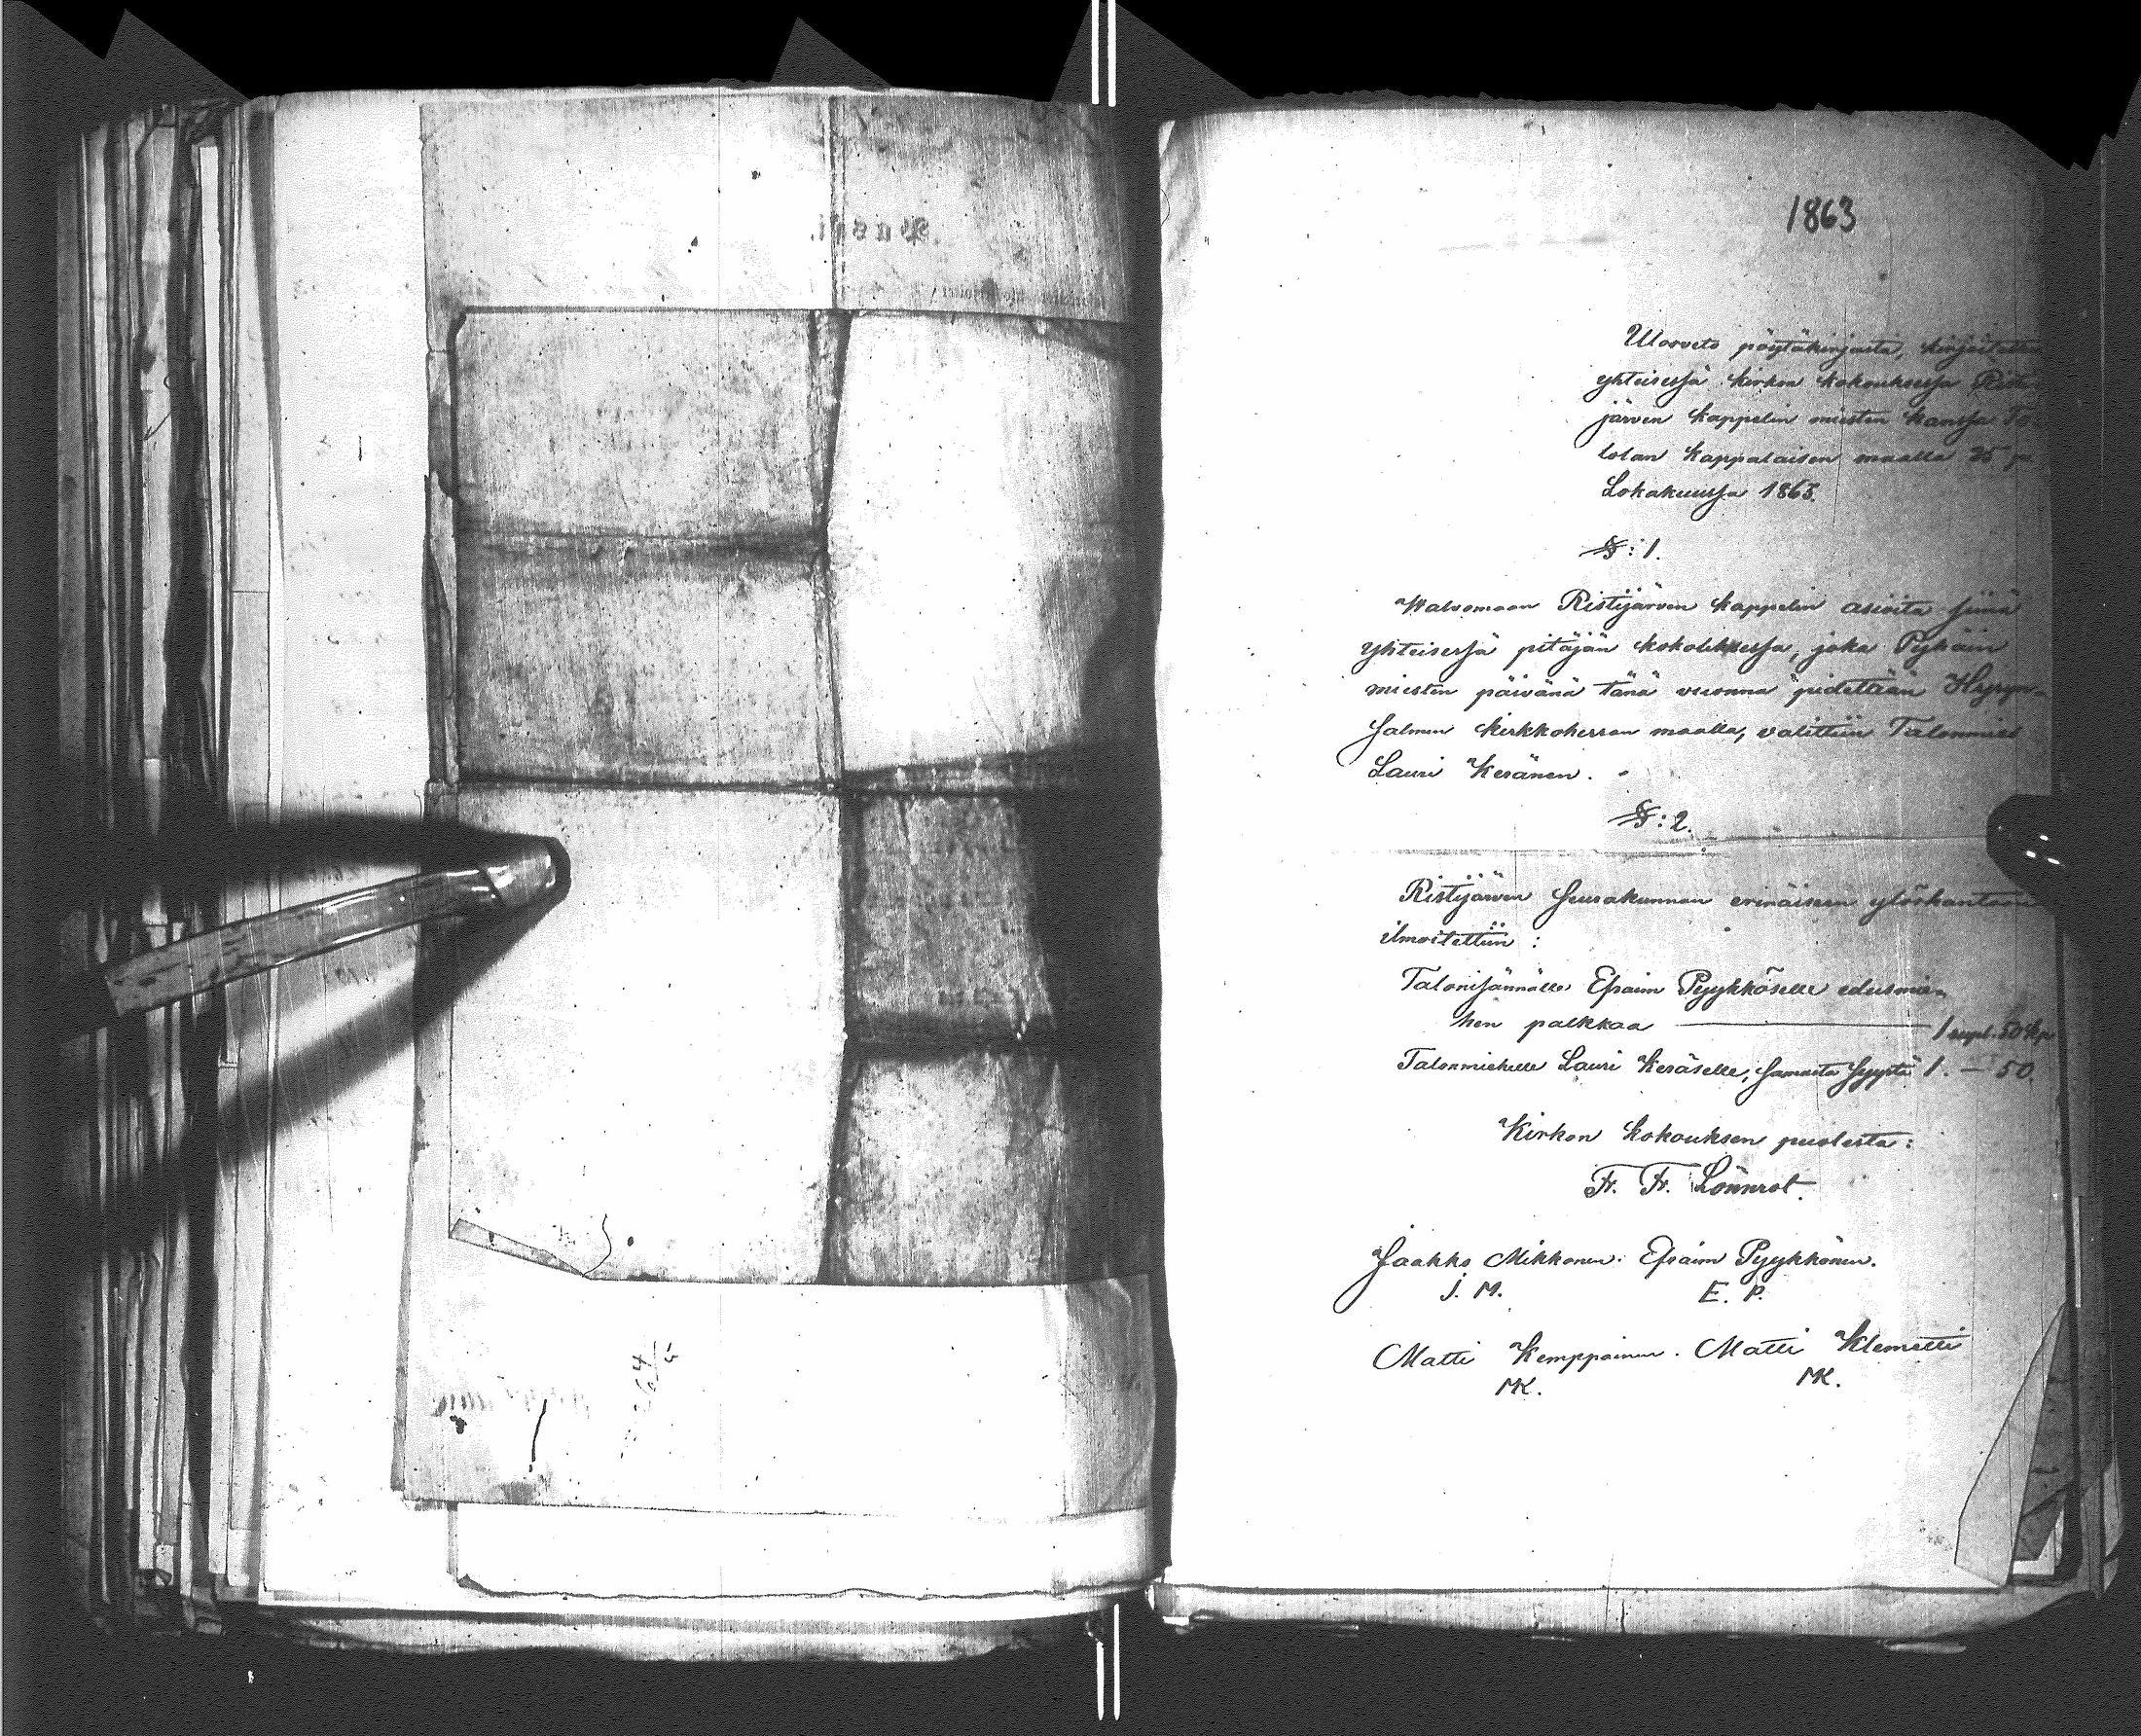 1863
Ulosveto pöytäkirjasta, kirjoitettu
yhteisessä kirkon kokouksessa Risti
järven kappelin miesten kanssa
lolan kappalaisen maalla 25 p.
Lokakuussa 1863.
§: 1.
Walvomaan Ristijärven kappelin asioita siinä
yhteisessä pitäjän kokouksessa, joka Pyhäin
miesten päivänä tänä vuonna pidettään Hyryn-
salmen kirkkoherran maalla, valittiin Talonmies
Lauri Keränen.
§: 2.
Ristijärven seurakunnan erinäiseen ylöskantoon
ilmoitettiin :
Talonisännälle Efraim Pyykköselle edusmie-
hen palkkaa — 1 rupl. 50 kp
Talonmiehelle Lauri Keräselle, samasta syystä 1. — 50.
Kirkon kokouksen puolesta:
Fr. Fr. Lönnrot.
Jaakko Mikkonen. Efraim Pyykkönen.
J. M. E. P.
Matti Kemppainen. Matti Klemetti
MK. MK.